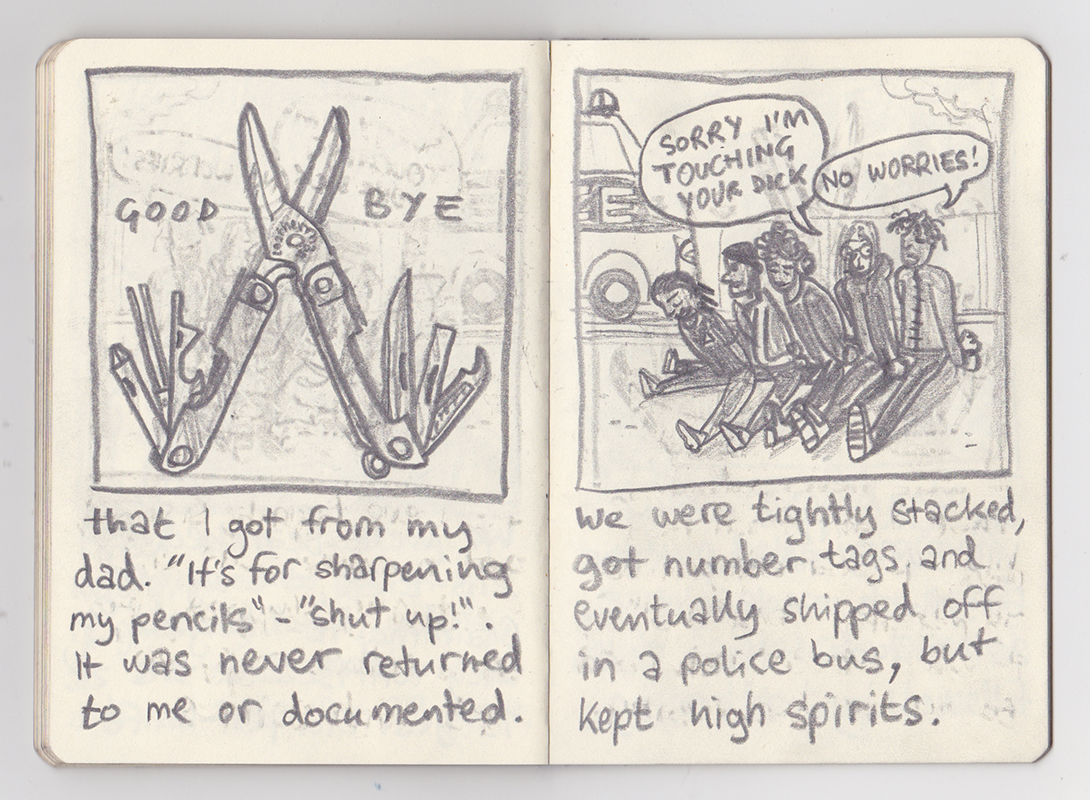 GOOD BYE
that I got from my
dad. "It's for sharpening
my pencils" - "shut up!".
It was never returned
to me or documented.
SORRY I'M
TOUCHING
YOUR DICK
NO WORRIES!
We were tightly stacked,
got number tags and
eventually shipped off
in a police bus, but
kept high spirits.